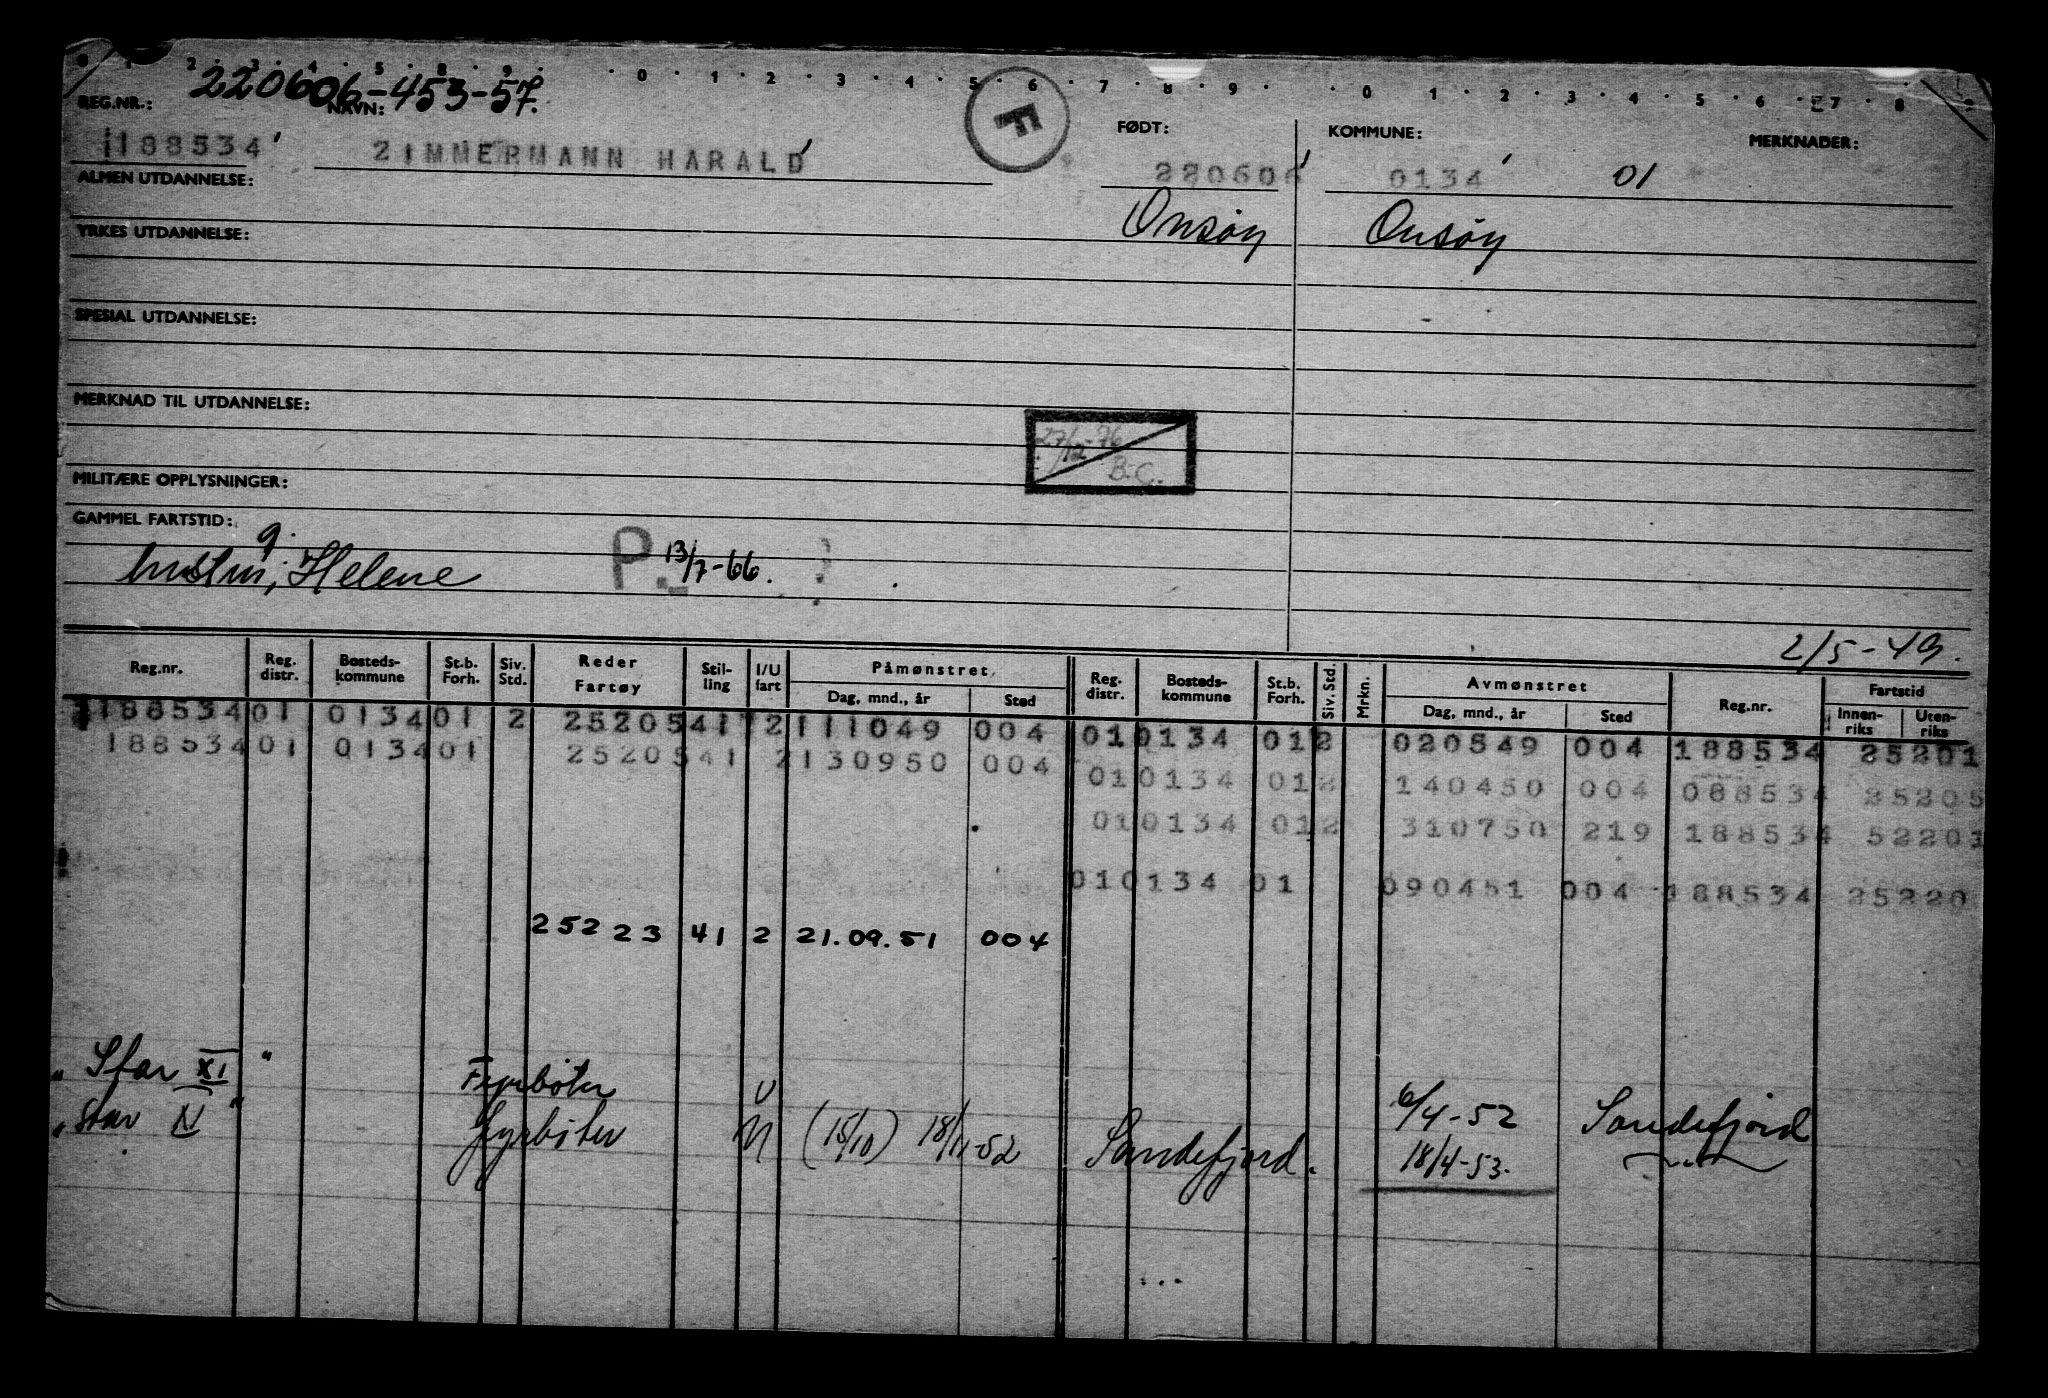 1 2 3 4 5 8 9 0 1 2 3 4 5 6 7 8 9 0 1 2 3 4 5 6 7 8
220606-453-57.
REG.NR.: NAVN: F FØDT: KOMMUNE: MERKNADER:
188534 ZIMMERMANN HARALD 220606 0134 01
ALMEN UTDANNELSE:
Onsøy Onsøy
YRKES UTDANNELSE:
SPESIAL UTDANNELSE:
MERKNAD TIL UTDANNELSE:
27/12-76
B.C.
MILITÆRE OPPLYSNINGER:
GAMMEL FARTSTID:
g.
hustru, Helene P. 13/7-66.
2/5-49.
Reg.nr. Reg. distr. Bosteds-kommune St.b. Forh. Siv. Std. Reder Fartøy Stil-ling I/U fart Påmønstret Dag, mnd., år Sted Reg. distr. Bosteds-kommune St.b. Forh. Siv. Std. Mrkn. Avmønstret Dag, mnd., år Sted Reg.nr. Fartstid Innen-riks Uten-riks
188534 01 0134 01 2 25205 41 2 111049 004 01 0134 01 2 020549 004 188534 25201
188534 01 0134 01 25205 41 2 130950 004 01 0134 01 2 140450 004 088534 25205
01 0134 01 2 310750 219 188534 52201
01 0134 01 090451 004 188534 25220
25223 41 2 21.09.51 004
"Star XI" Fyrbøter U 6/4-52 Sandefjord
"Star IV" Fyrbøter U (15/10) 18/11-52 Sandefjord. 18/4-53. —"—